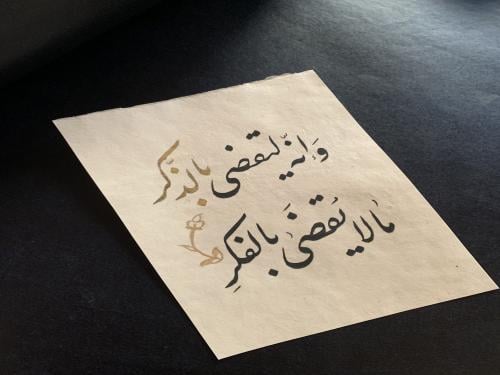 وَإنّه ليقضى بالذّكر
مالا يُقضَى بالفكرِ